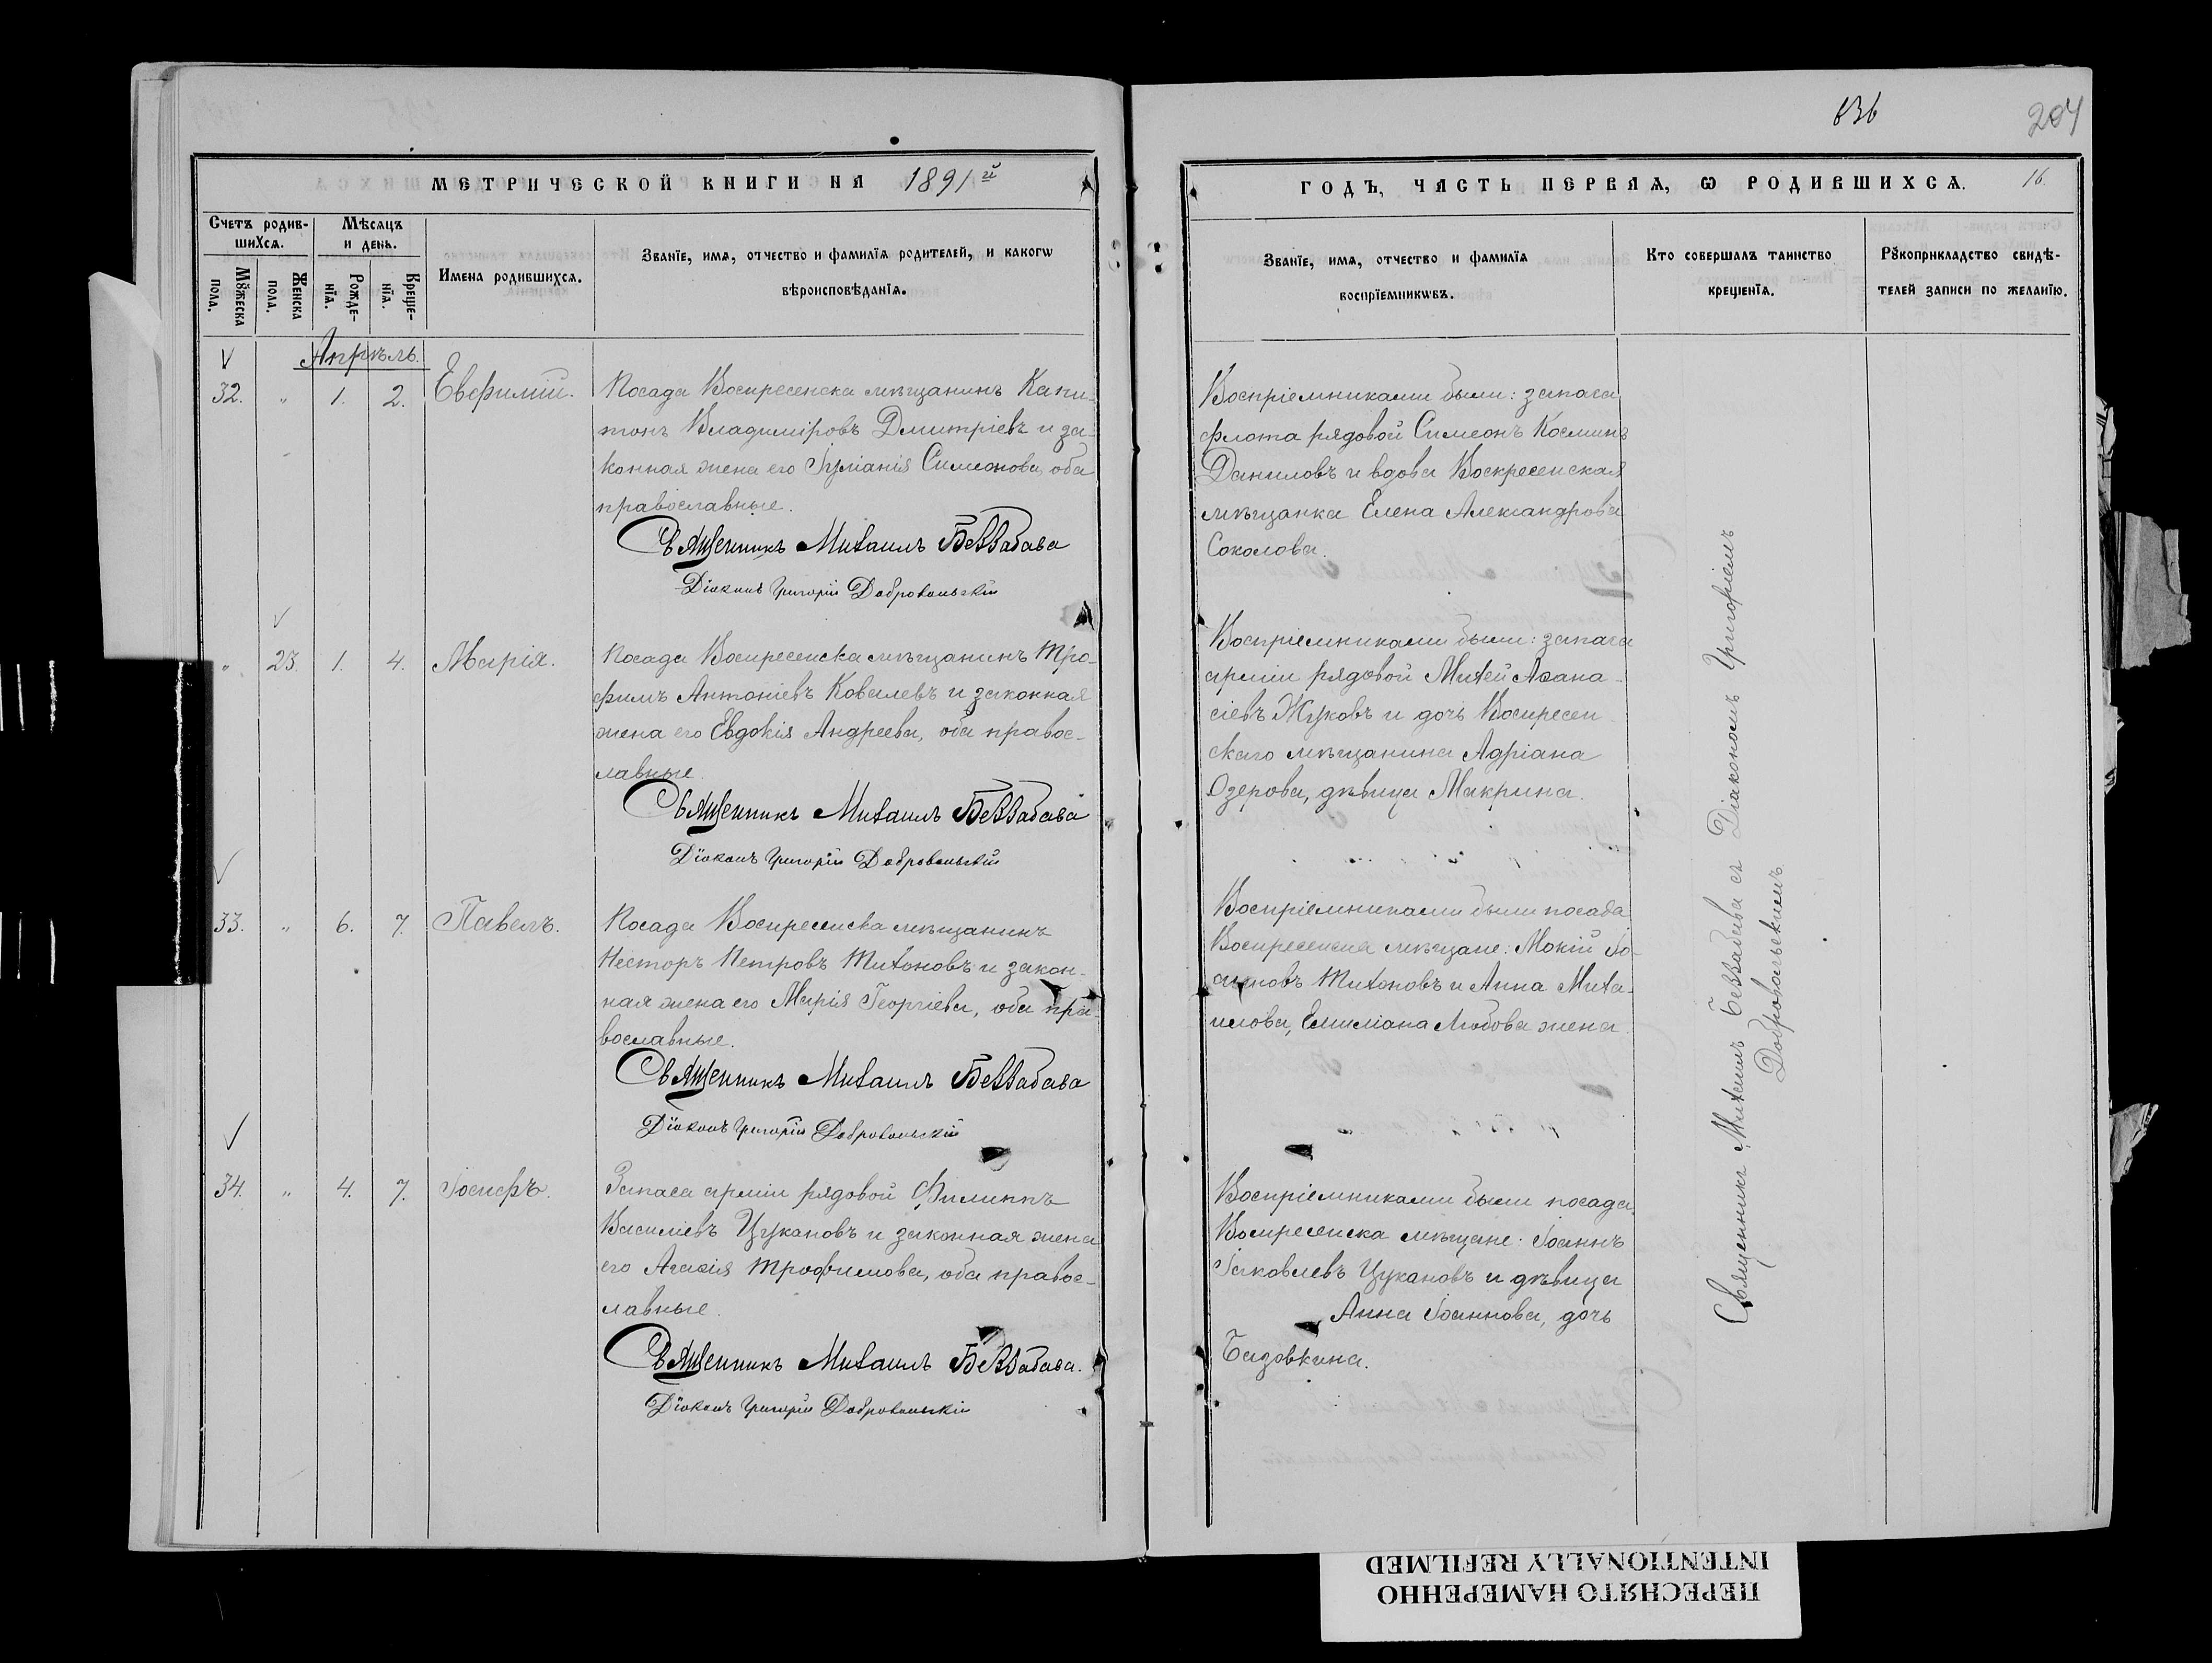 МЕТРИЧЕСКОЙ КНИГИ НА 1891й
Счетъ родив-
шихся.
Мѣсяцъ
и день.
Мꙋжеска
пола.
Женска
пола.
Рожде-
нїя.
Креще-
нїя.
Имена родившихся.
Званїе, имя, отчество и фамилїя родителей, и какогѡ
вѣроисповѣданїя.
Апрѣль.
32. " 1. 2. Евфимій.
Посада Воскресенска мѣщанинъ Капи-
тонъ Владиміровъ Дмитріевъ и за-
конная жена его Іуліанія Симеонова, оба
православные.
Священникъ Михаилъ Беззабава
Діаконъ Григорій Добровольскій
" 23. 1. 4. Марія.
Посада Воскресенска мѣщанинъ Тро-
фимъ Антоніевъ Ковалевъ и законная
жена его Евдокія Андреева, оба правос-
лавные.
Священникъ Михаилъ Беззабава
Діаконъ Григорій Добровольскій
33. " 6. 7. Павелъ.
Посада Воскресенска мѣщанинъ
Несторъ Петровъ Тихоновъ и закон-
ная жена его Марія Георгіева, оба пра-
вославные.
Священникъ Михаилъ Беззабава
Діаконъ Григорій Добровольскій
34. " 4. 7. Іосифъ.
Запаса арміи рядовой Филиппъ
Василіевъ Цукановъ и законная жена
его Агафія Трофимова, оба правос-
лавные.
Священникъ Михаилъ Беззабава.
Діаконъ Григорій Добровольскій
836
204
ГОДЪ, ЧАСТЬ ПЕРВАЯ, Ѡ РОДИВШИХСЯ. 16.
Званїе, имя, отчество и фамилїя
воспрїемникѡвъ.
Кто совершалъ таинство
крещенїя.
Рꙋкоприкладство свидѣ-
телей записи по желанїю.
Воспріемниками были: запаса
флота рядовой Симеонъ Косминъ
Даниловъ и вдова Воскресенская
мѣщанка Елена Александрова
Соколова.
Воспріемниками были: запаса
арміи рядовой Михей Аѳана-
сіевъ Жуковъ и дочь Воскресен
скаго мѣщанина Адріана
Озерова, дѣвица Макрина.
Воспріемниками были посада
Воскресенска мѣщане: Мокій
Тихоновъ и Анна Миха-
илова, Емиліана жена.
Воспріемниками были посада
Воскресенска мѣщане: Іоаннъ
Іаковлевъ Цукановъ и дѣвица
Анна Іоаннова, дочь
Базовкина.
Священникъ Михаилъ Беззабава съ Діакономъ Григоріемъ
Добровольскимъ.
ПЕРЕСНЯТО НАМЕРЕННО
INTENTIONALLY REFILMED